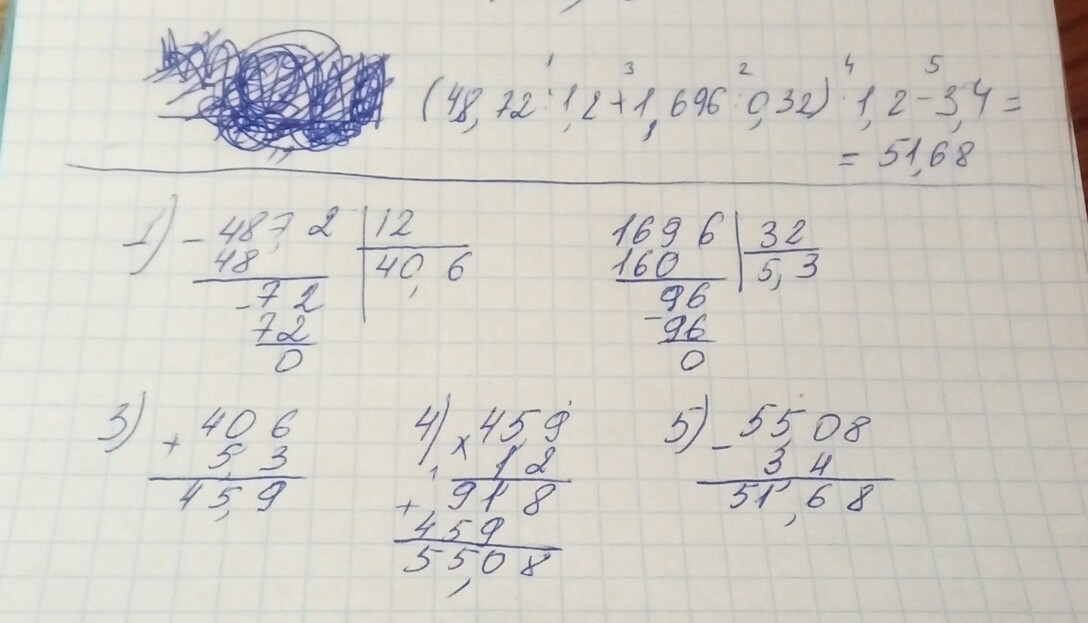 1 3 2 4 5
(48,72:1,2+1,696:0,32)·1,2-3,4=
=51,68
1) - 487,2 | 12
48 | 40,6
-72
72
0
1696 | 32
160 | 5,3
96
-96
0
3) + 406
5,3
45,9
4) × 45,9
1,2
+ 918
459
55,08
5) - 55,08
3 4
51,68